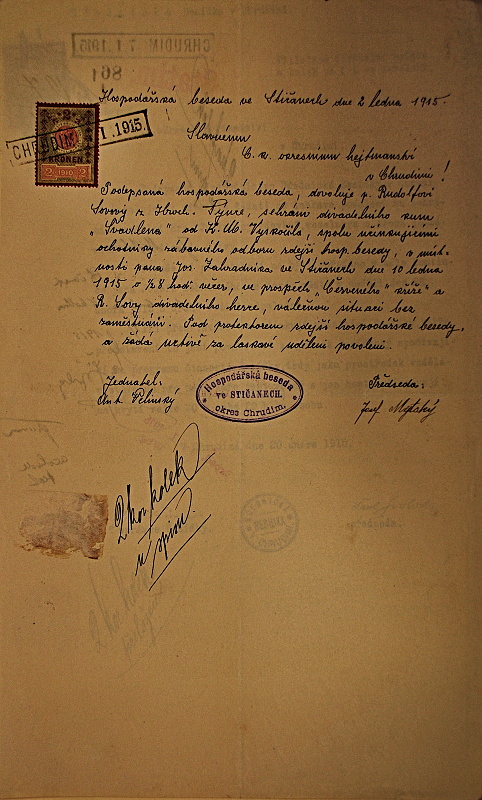 Hospodářská beseda ve Stičanech dne 2 ledna 1915.
CHRUDIM 7.1.1915
861
CHRUDIM I .1915.
2
KRONEN
2 1910 2
Slavnému
C. k. okresnímu hejtmanství
v Chrudimi!
Podepsaná hospodářská beseda, dovoluje p. Rudolfovi
Sovovy z Hroch. Týnce, sehrání divadelního kusu
„Svadlena" od K. Vyskočila, spolu účinkujícími
ochotníky zábavného odboru zdejší hosp. besedy, v míst-
nosti pana Jos. Zahradníka ve Stičanech dne 10 ledna
1915 o ½8 hod. večer, ve prospěch „Červeného" kříže" a
R. Sovy divadelního herce, válečnou situací bez
zaměstnání. Pod protektorem zdejší hospodářské besedy,
a žádá uctivě za laskavé udělení povolení.
Jednatel:
Ant. Pelinský
Hospodářská beseda
ve STIČANECH.
okres Chrudim.
Předseda:
Josef
2 kor. kolek
u spisu.